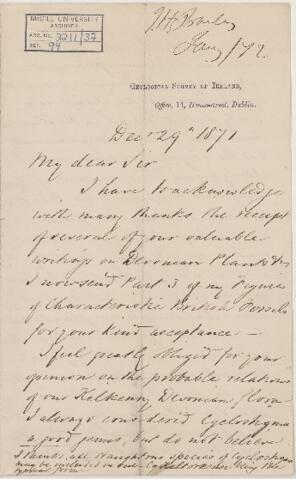 McGILL UNIVERSITY
ARCHIVES
ACC. NO. 2211/37
REF. 94
Jany/72
GEOLOGICAL SURVEY OF IRELAND,
Office, 14, Hume-street, Dublin.
Decr 29th 1871
My dear Sir
I have to acknowledge
with many thanks the receipt
of several of your valuable
writings on Devonian Plants &c
I now send Part 3 of my "Figures
of Characteristic British Fossils
for your kind acceptance —
I feel greatly obliged for your
opinion on the probable relations
of our Kilkenny Devonian flora
I always considered Cyclostigma
a good genus, but do not believe
I thanks, all Haughtons species of Cyclostigma
may be included in one C. Kiltorkense being the
typical form